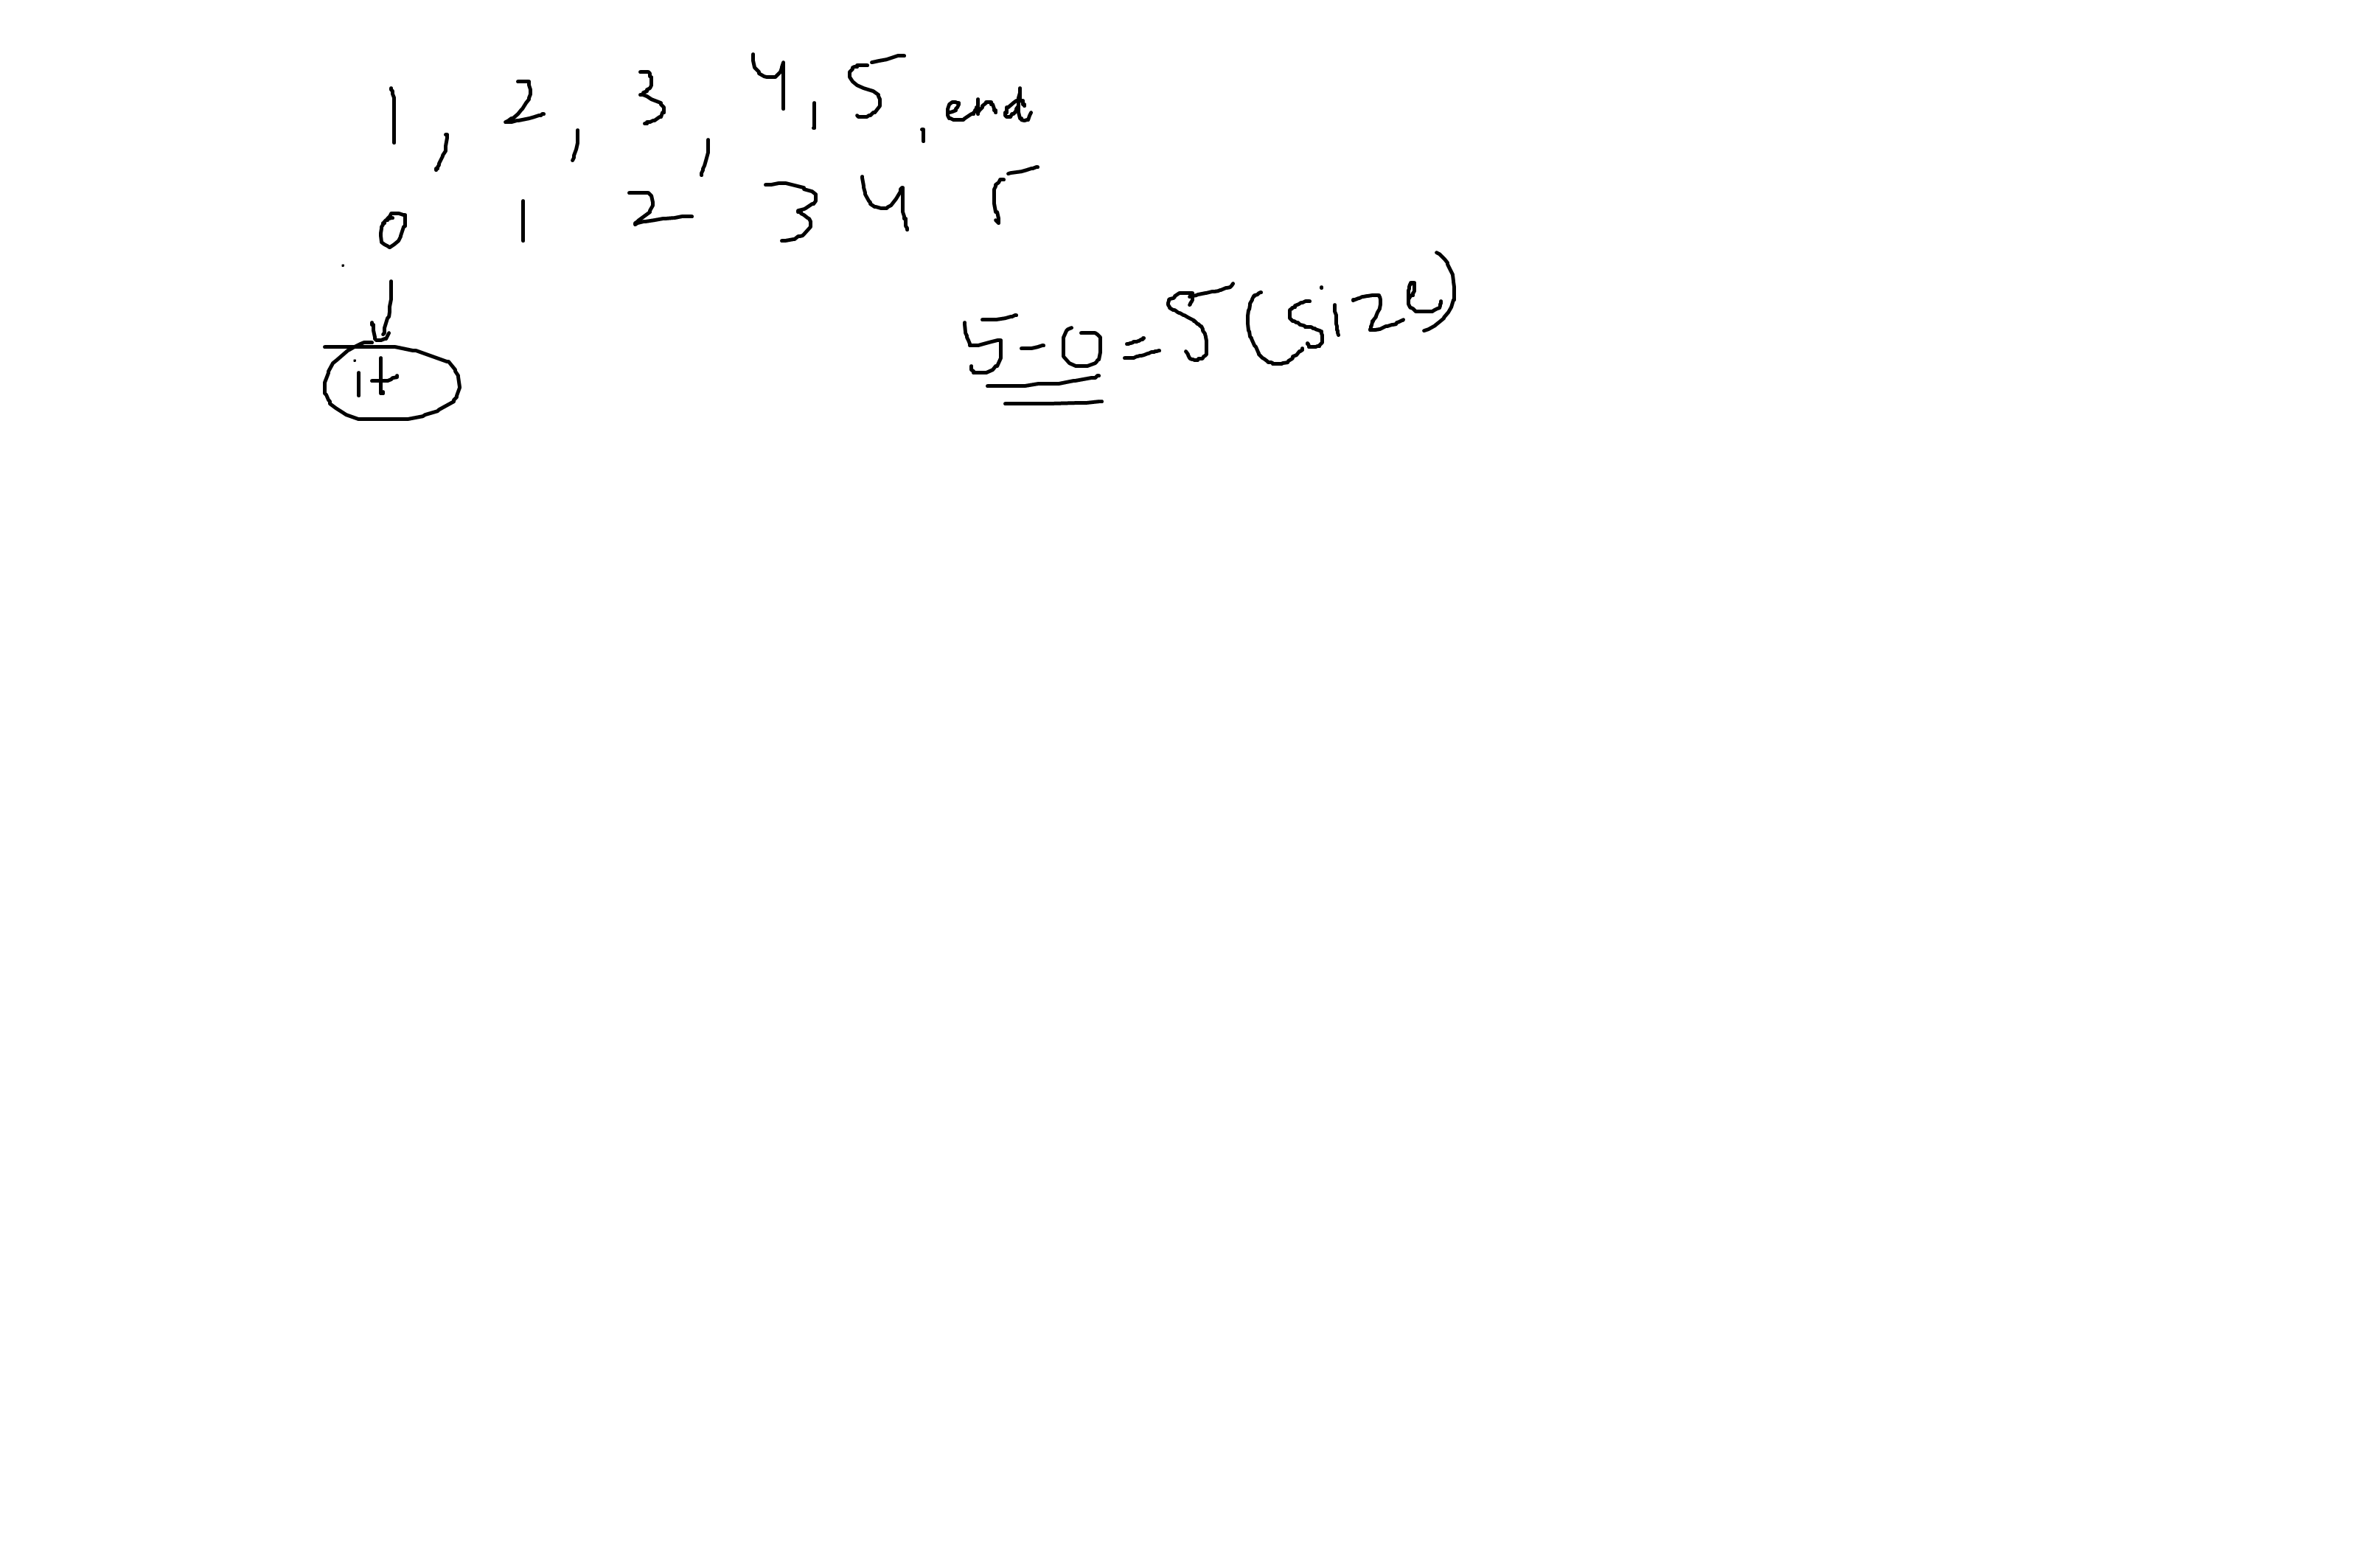 1, 2, 3, 4, 5, end
0 1 2 3 4 5
5-0=5(size)
it